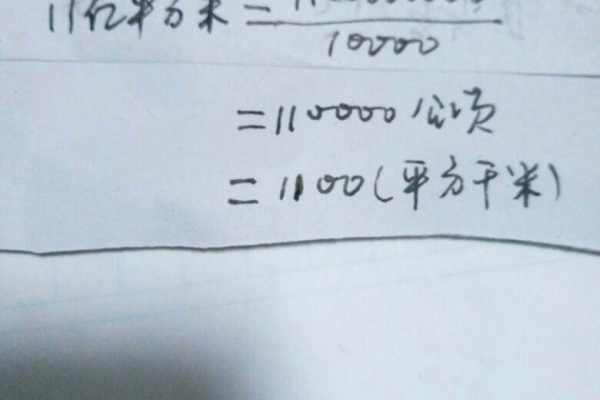 11亿平方米=
10000
=110000公顷
=1100(平方千米)